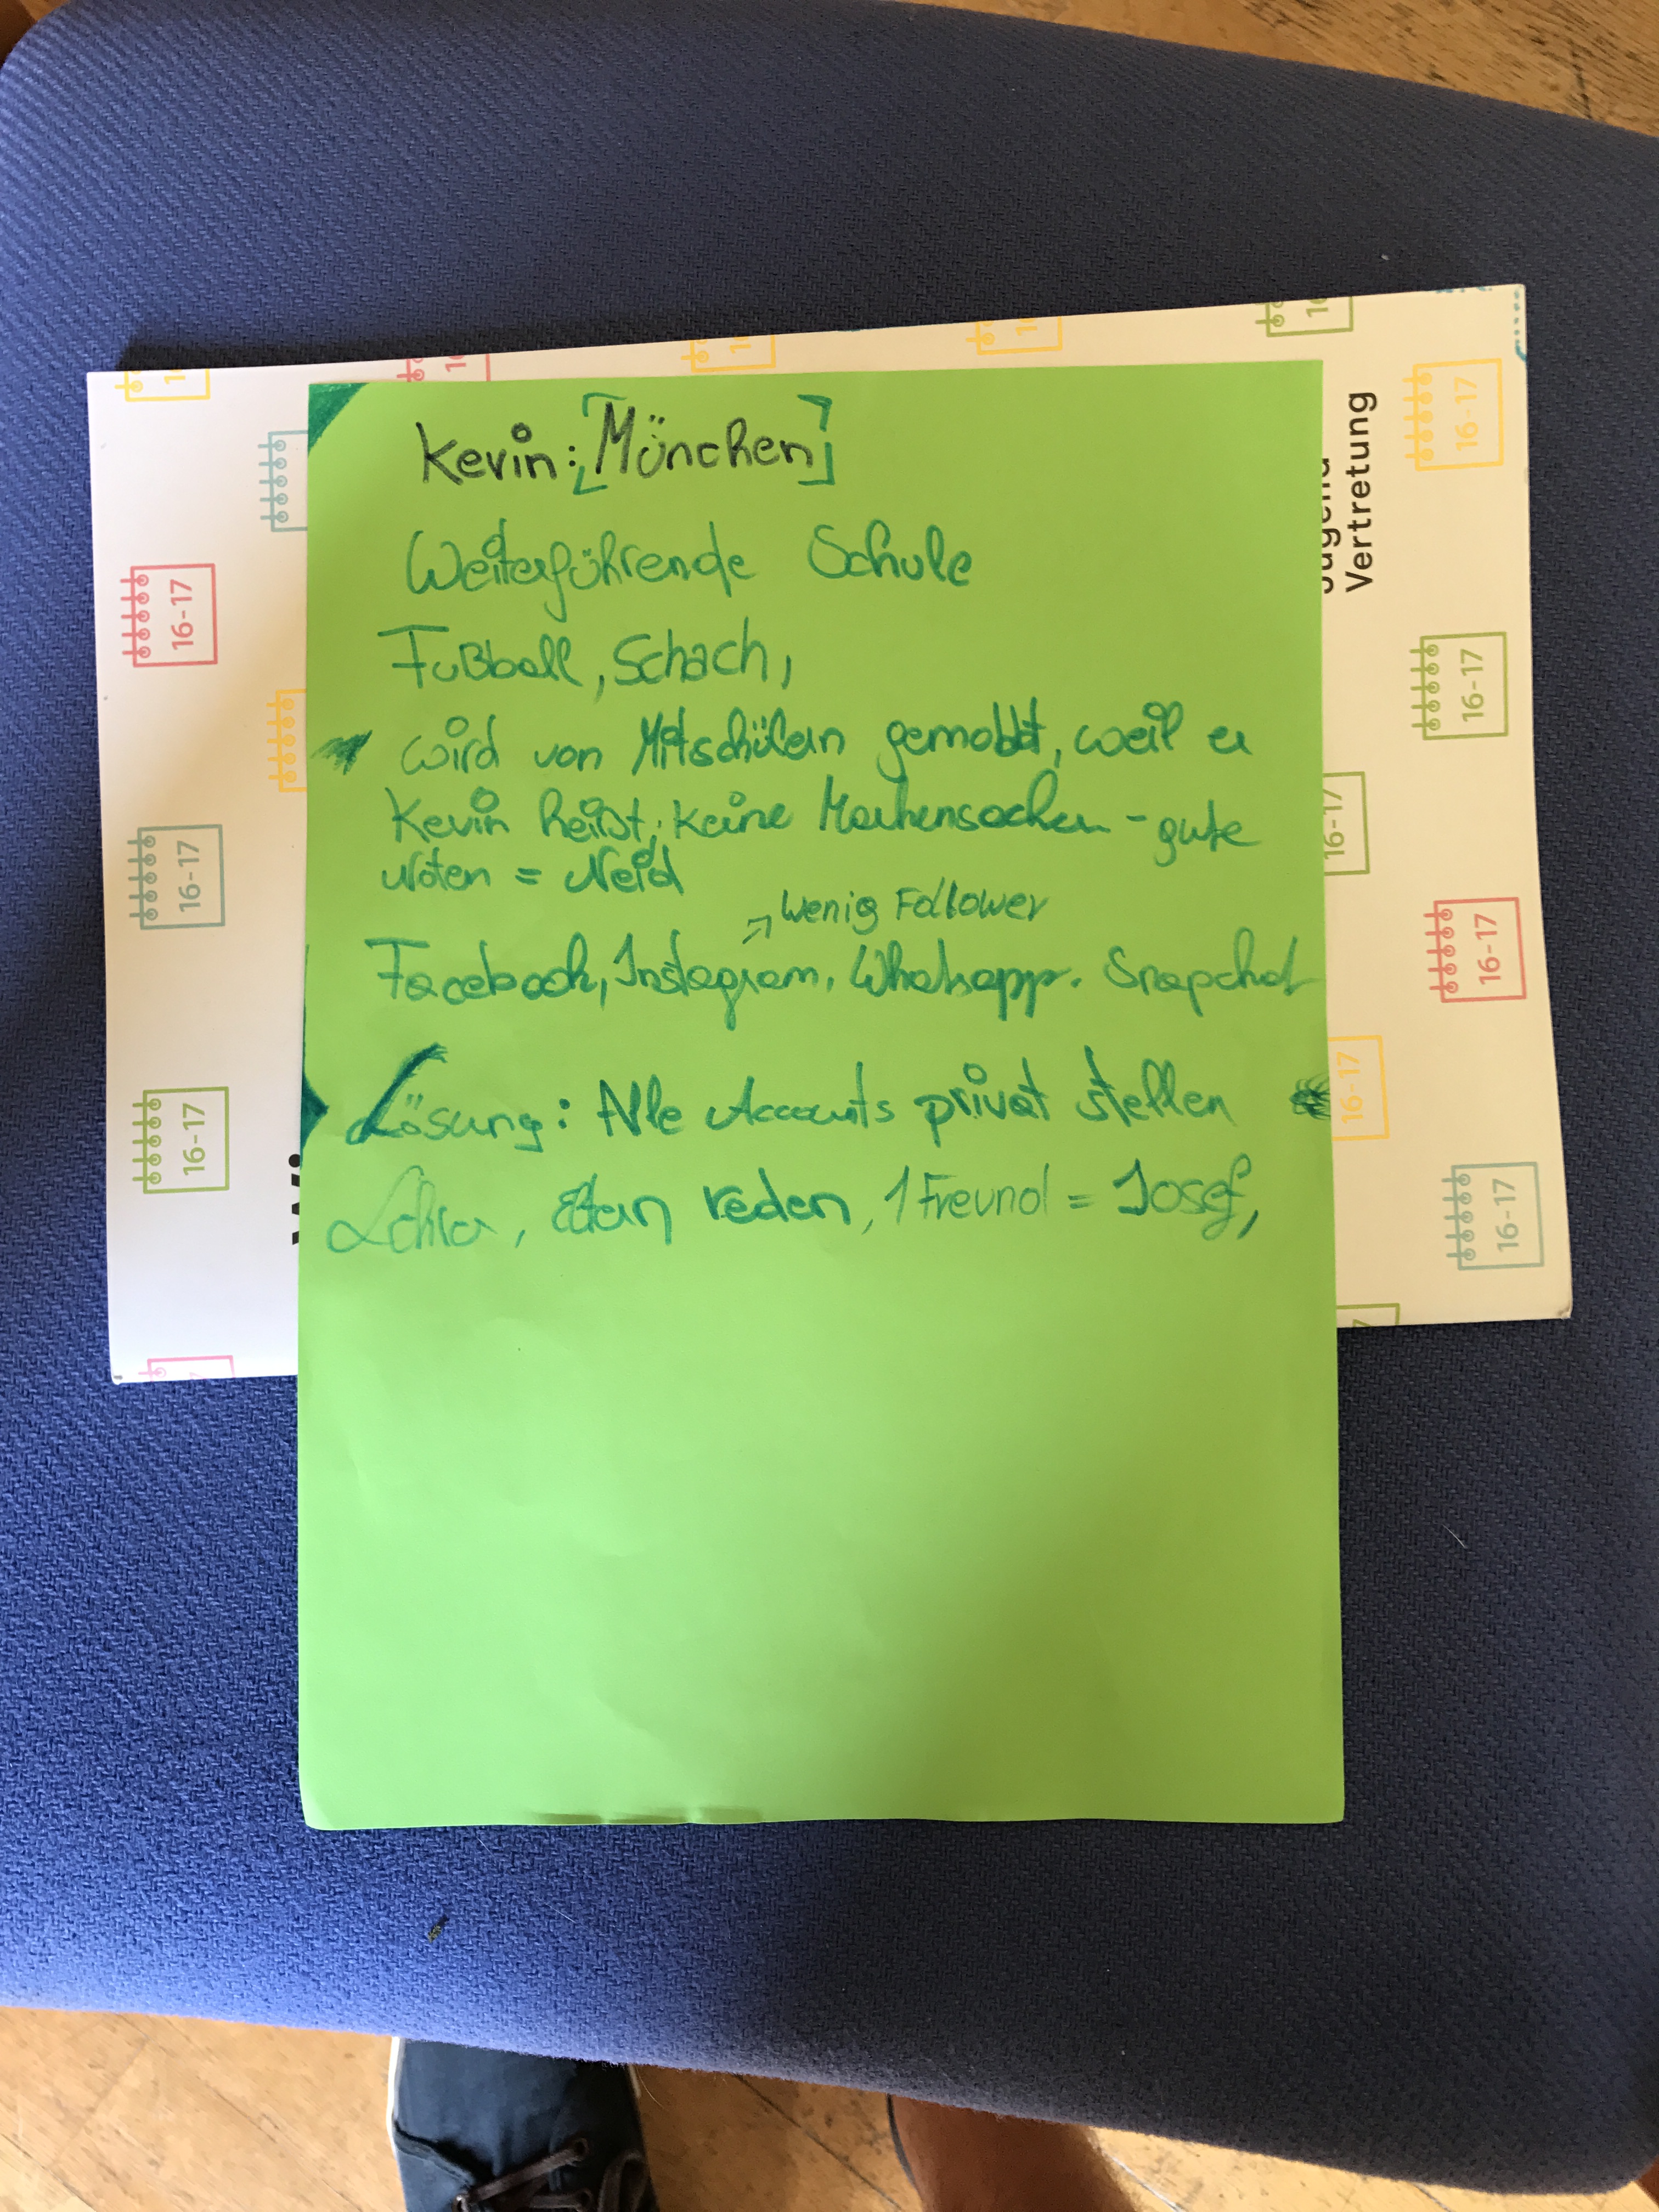 Kevin: [München]
Weiterführende Schule
Fußball, Schach,
wird von Mitschülern gemobbt, weil er
Kevin heißt, keine Markensachen - gute
Noten = Neid
→ Wenig Follower
Facebook, Instagram, Whatsapp, Snapchat
Lösung: Alle Accounts privat stellen
reden, 1 Freund = Josef,
Jugend
Vertretung
16-17
16-17
16-17
16-17
16-17
16-17
16-17
16-17
16-17
16-17